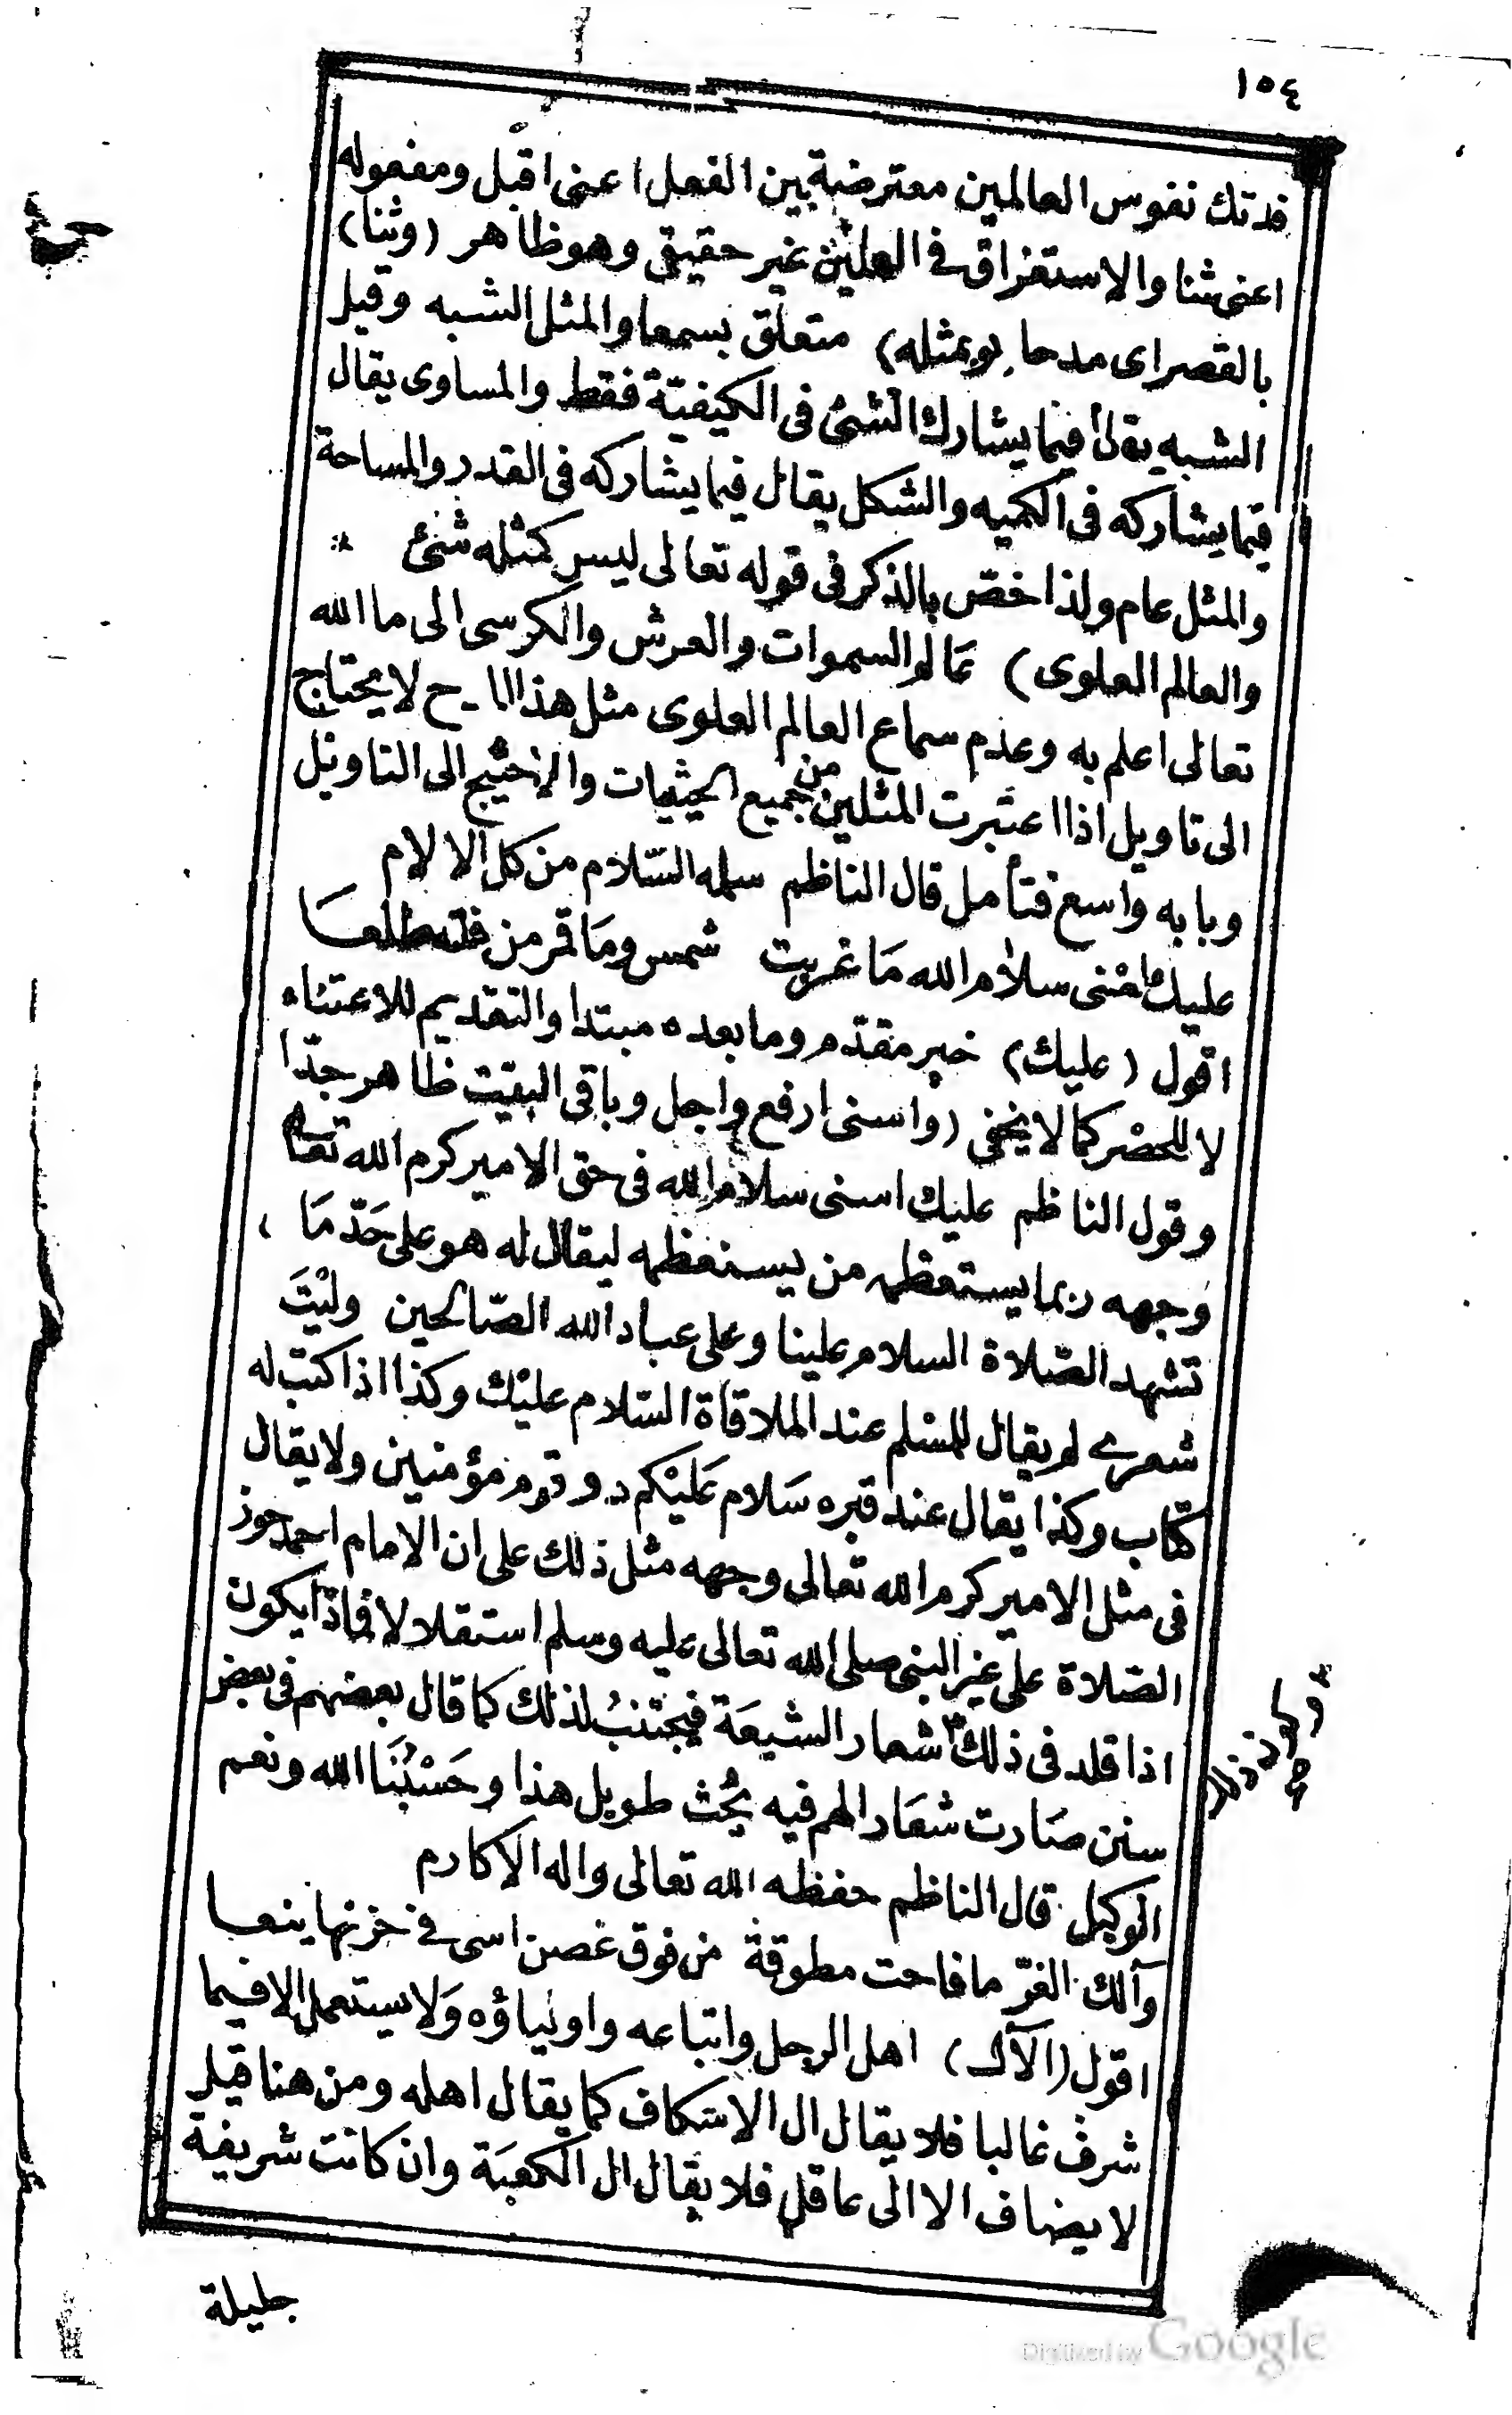 ١٥٤
فدتك نفوس العالمين معترضة بين الفعل اعنى اقبل ومفعوله
اعنى ثنا والاستغراق فى العالمين غير حقيقى وهو ظاهر (وثنا)
بالقصر اى مدحا (وبمثله) متعلق بسمعا والمثل الشبه وقيل
الشبه يقال فيما يشارك الشئ فى الكيفيّة فقط والمساوى يقال
فيما يشاركه فى الكميه والشكل يقال فيما يشاركه فى القدر والمساحة
والمثل عام ولذا خصّ بالذكر فى قوله تعالى ليس كمثله شئ
والعالم العلوى) عالم السموات والعرش والكرسى الى ما الله
تعالى اعلم به وعدم سماع العالم العلوى مثل هذا الا ح لا يحتاج
الى تاويل اذا اعتبرت المثلين من جميع الحيثيات والا احتيج الى التاويل
وبابه واسع فتأمل قال الناظم سلمه السّلام من كل الالام
عليك اسْنى سلام الله مَا غربت شمس ومَا قمر من فلكه طلعَا
اقول (عليك) خبر مقدّم وما بعده مبتدا والتقديم للاعتناء
لا للحصْر كما لا يخفى (واسنى ارفع واجل وباقى البيت ظاهر جدّا
وقول الناظم عليك اسنى سلام الله فى حق الامير كرم الله تعالى
وجهه ربما يستعظمه من يستعظمه ليقال له هو على حَدّ مَا
تشهد الصّلاة السلام علينا وعلى عباد الله الصّالحين وليْتَ
شعرى لم يقال للمسْلم عند الملاقاة السّلام عليْك وكذا اذا كتب له
كتاب وكذا يقال عند قبره سَلام عَليْكم دار قوم مؤمنين ولا يقال
فى مثل الامير كرم الله تعالى وجهه مثل ذلك على ان الامام احمد جوز
الصّلاة على غير النبى صلى الله تعالى عليه وسلم استقلالا فماذا يكون
اذا قلد فى ذلك شعار الشيعَة فيجتنبُ لذلك كما قال بعضهم فى بعض
سنن صَارت شعَارا لهم فيه بحْث طويل هذا وحَسْبُنَا الله ونعم
الوكيل قال الناظم حفظه الله تعالى واله الاكارم
وآلك الغرّ ما ناحت مطوقة من فوق غصن اسى فى حزنها ينعا
اقول (الآل) اهل الرجل واتباعه واولياؤه وَلا يستعمل الا فيما
شرف غالبا فلا يقال ال الاسكاف كما يقال اهله ومن هنا قيل
لا يضاف الا الى عاقل فلا يقال ال الكعبَة وان كانت شريفة
جليلة
Digitized by Google